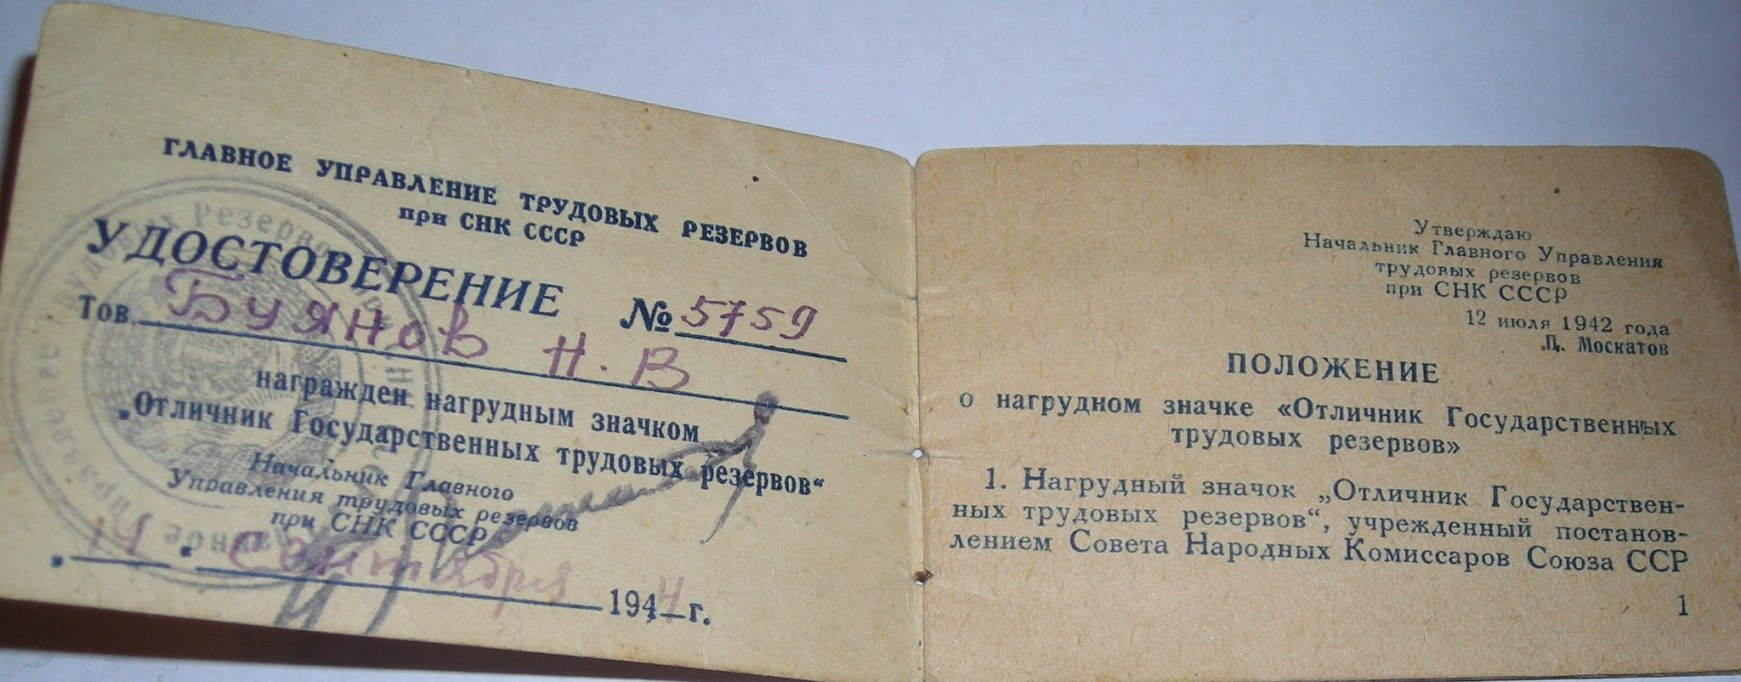 ГЛАВНОЕ УПРАВЛЕНИЕ ТРУДОВЫХ РЕЗЕРВОВ
при СНК СССР
УДОСТОВЕРЕНИЕ № 5759
Тов. Буянов Н. В
награжден нагрудным значком
„Отличник Государственных трудовых резервов“
Начальник Главного
Управления трудовых резервов
при СНК СССР
„14 " Сентября 1944 г.
Утверждаю
Начальник Главного Управления
трудовых резервов
при СНК СССР
12 июля 1942 года
П. Москатов
ПОЛОЖЕНИЕ
о нагрудном значке «Отличник Государственных
трудовых резервов»
1. Нагрудный значок „Отличник Государствен-
ных трудовых резервов“, учрежденный постанов-
лением Совета Народных Комиссаров Союза ССР
1